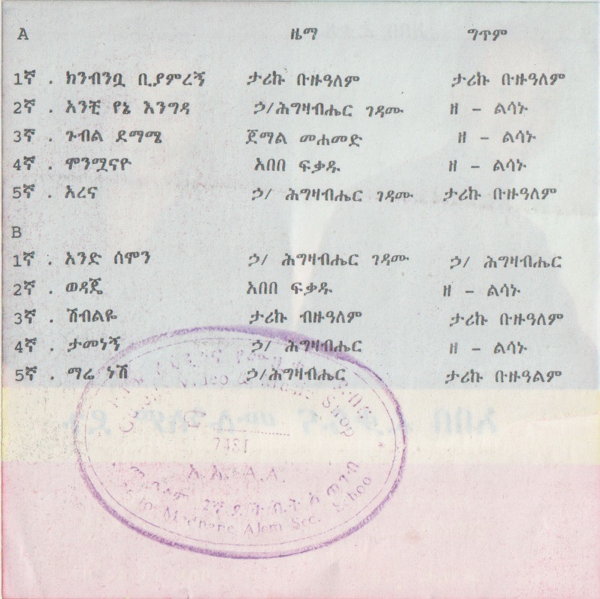 A ዜማ ግጥም
1ኛ . ክንብንቧ ቢያምረኝ ታሪኩ ቡዙዓለም ታሪኩ ቡዙዓለም
2ኛ . አንቺ የኔ እንግዳ ኃ/ሕግዛብሔር ገዳሙ ዘ - ልሳኑ
3ኛ . ጉብል ደማሜ ጀማል መሐመድ ዘ - ልሳኑ
4ኛ . ሞንሟናዮ አበበ ፍቃዱ ዘ - ልሳኑ
5ኛ . አረና ኃ/ ሕግዛብሔር ገዳሙ ታሪኩ ቡዙዓለም
B
1ኛ . አንድ ሰሞን ኃ/ ሕግዛብሔር ገዳሙ ኃ/ ሕግዛብሔር
2ኛ . ወዳጄ አበበ ፍቃዱ ዘ - ልሳኑ
3ኛ . ሽብልዬ ታሪኩ ብዙዓለም ታሪኩ ቡዙዓለም
4ኛ . ታመነኝ ኃ/ ሕግዛብሔር ዘ - ልሳኑ
5ኛ . ማሬ ነሽ ኃ/ሕግዛብሔር ታሪኩ ቡዙዓልም
Shop
7481
አ.አ.
Alem Sec. School